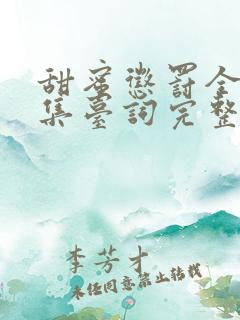 甜蜜懲罰全
集臺詞完整
李芳才
未经同意禁止转载